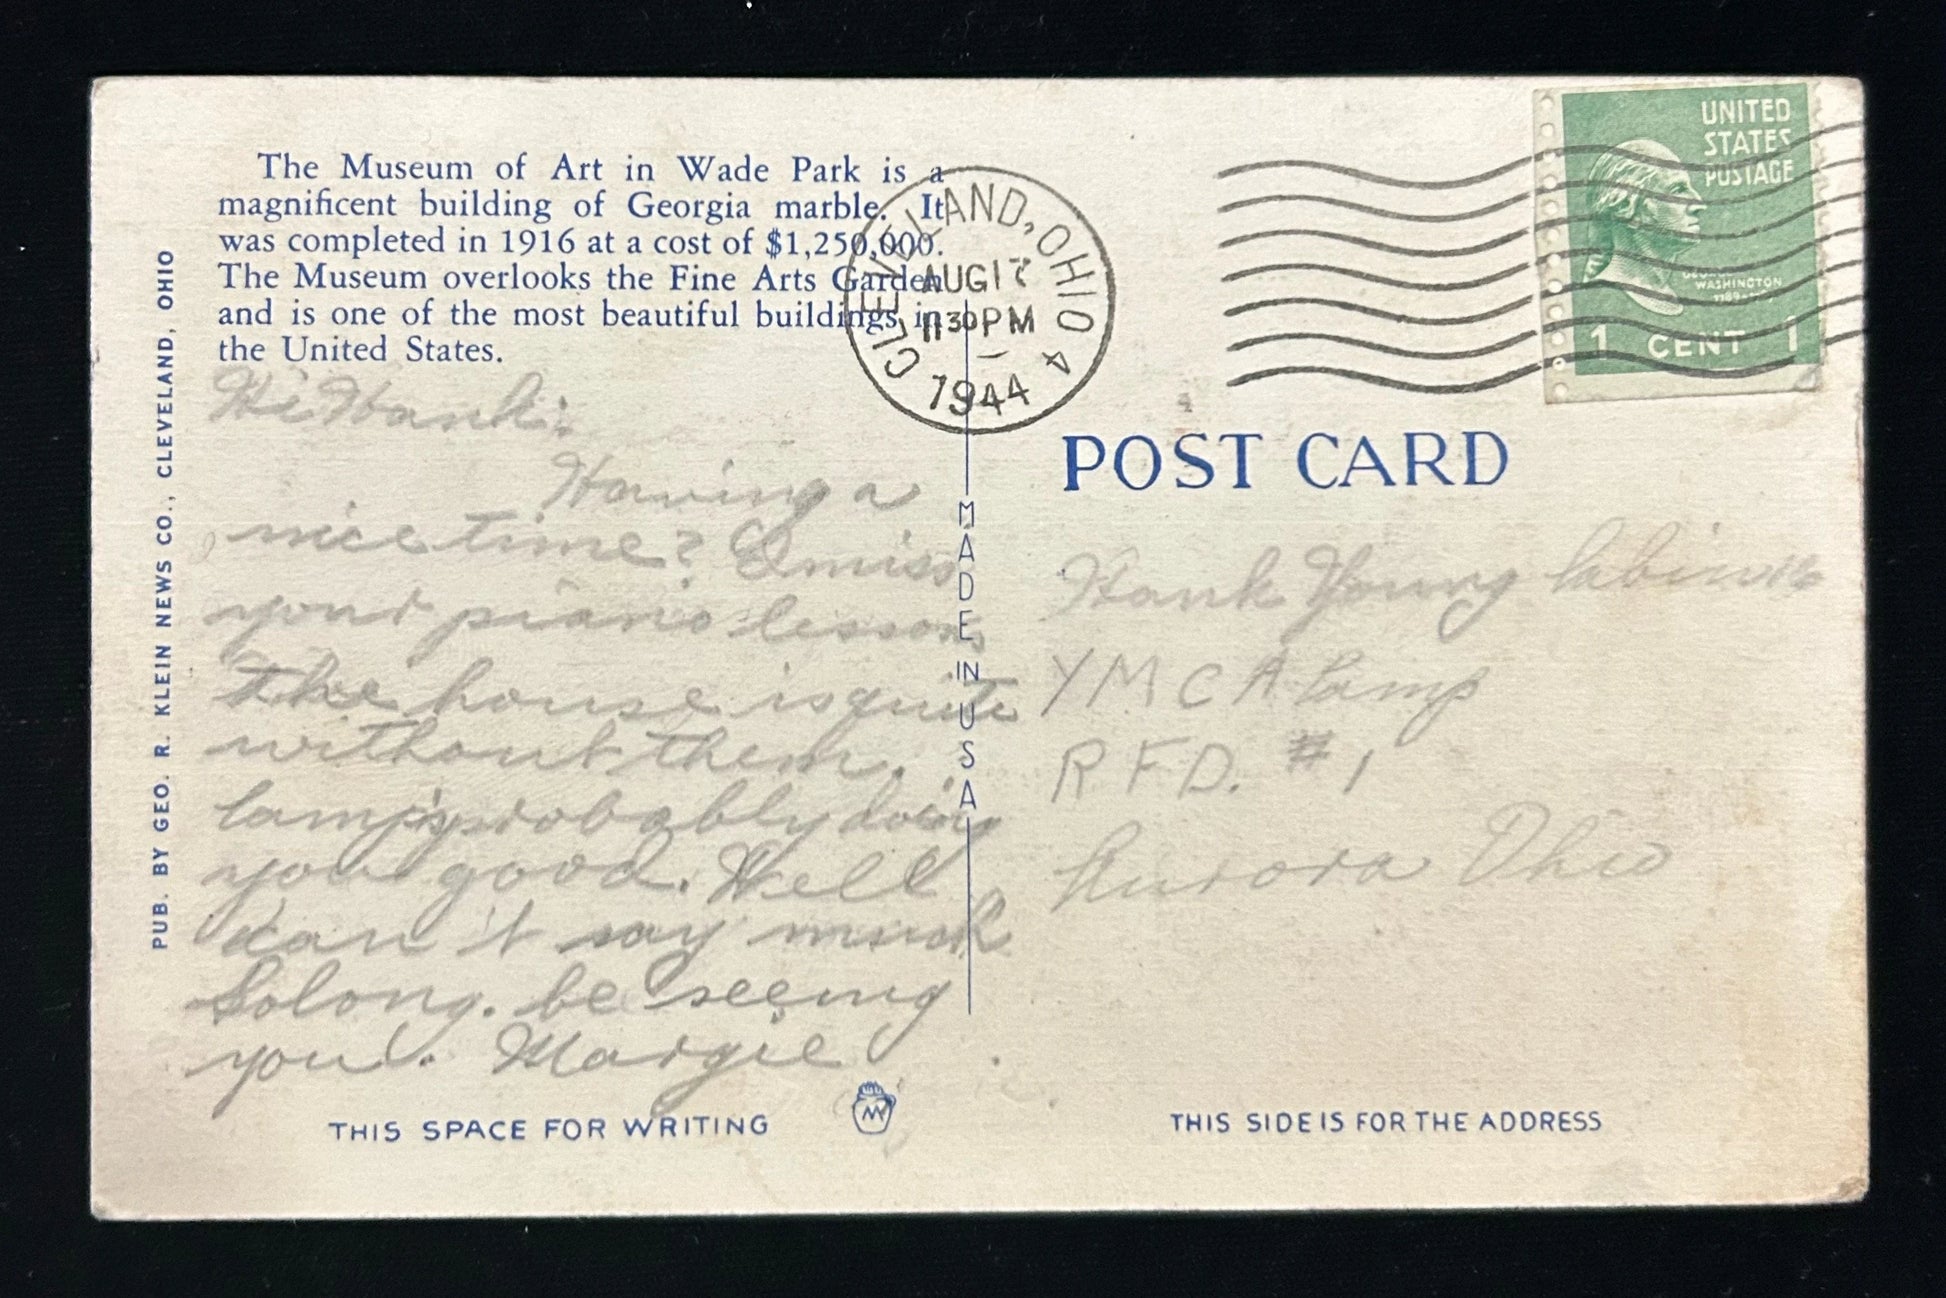 The Museum of Art in Wade Park is a
magnificent building of Georgia marble. It
was completed in 1916 at a cost of $1,250,000.
The Museum overlooks the Fine Arts Garden
and is one of the most beautiful buildings in
the United States.
Hi Hank:
Having a
nice time? I miss
your piano lesson,
the house is quite
without them.
Camp's probably doing
you good. Well
can't say much
So long. be seeing
you. Margie
THIS SPACE FOR WRITING
PUB. BY GEO. R. KLEIN NEWS CO., CLEVELAND, OHIO
MADE IN USA
CLEVELAND, OHIO 4
AUG 17
11 30 PM
1944
UNITED
STATES
POSTAGE
GEORGE
WASHINGTON
1 CENT 1
POST CARD
Hank Young Cabin
YMCA Camp
R F D. #1
Aurora Ohio
THIS SIDE IS FOR THE ADDRESS